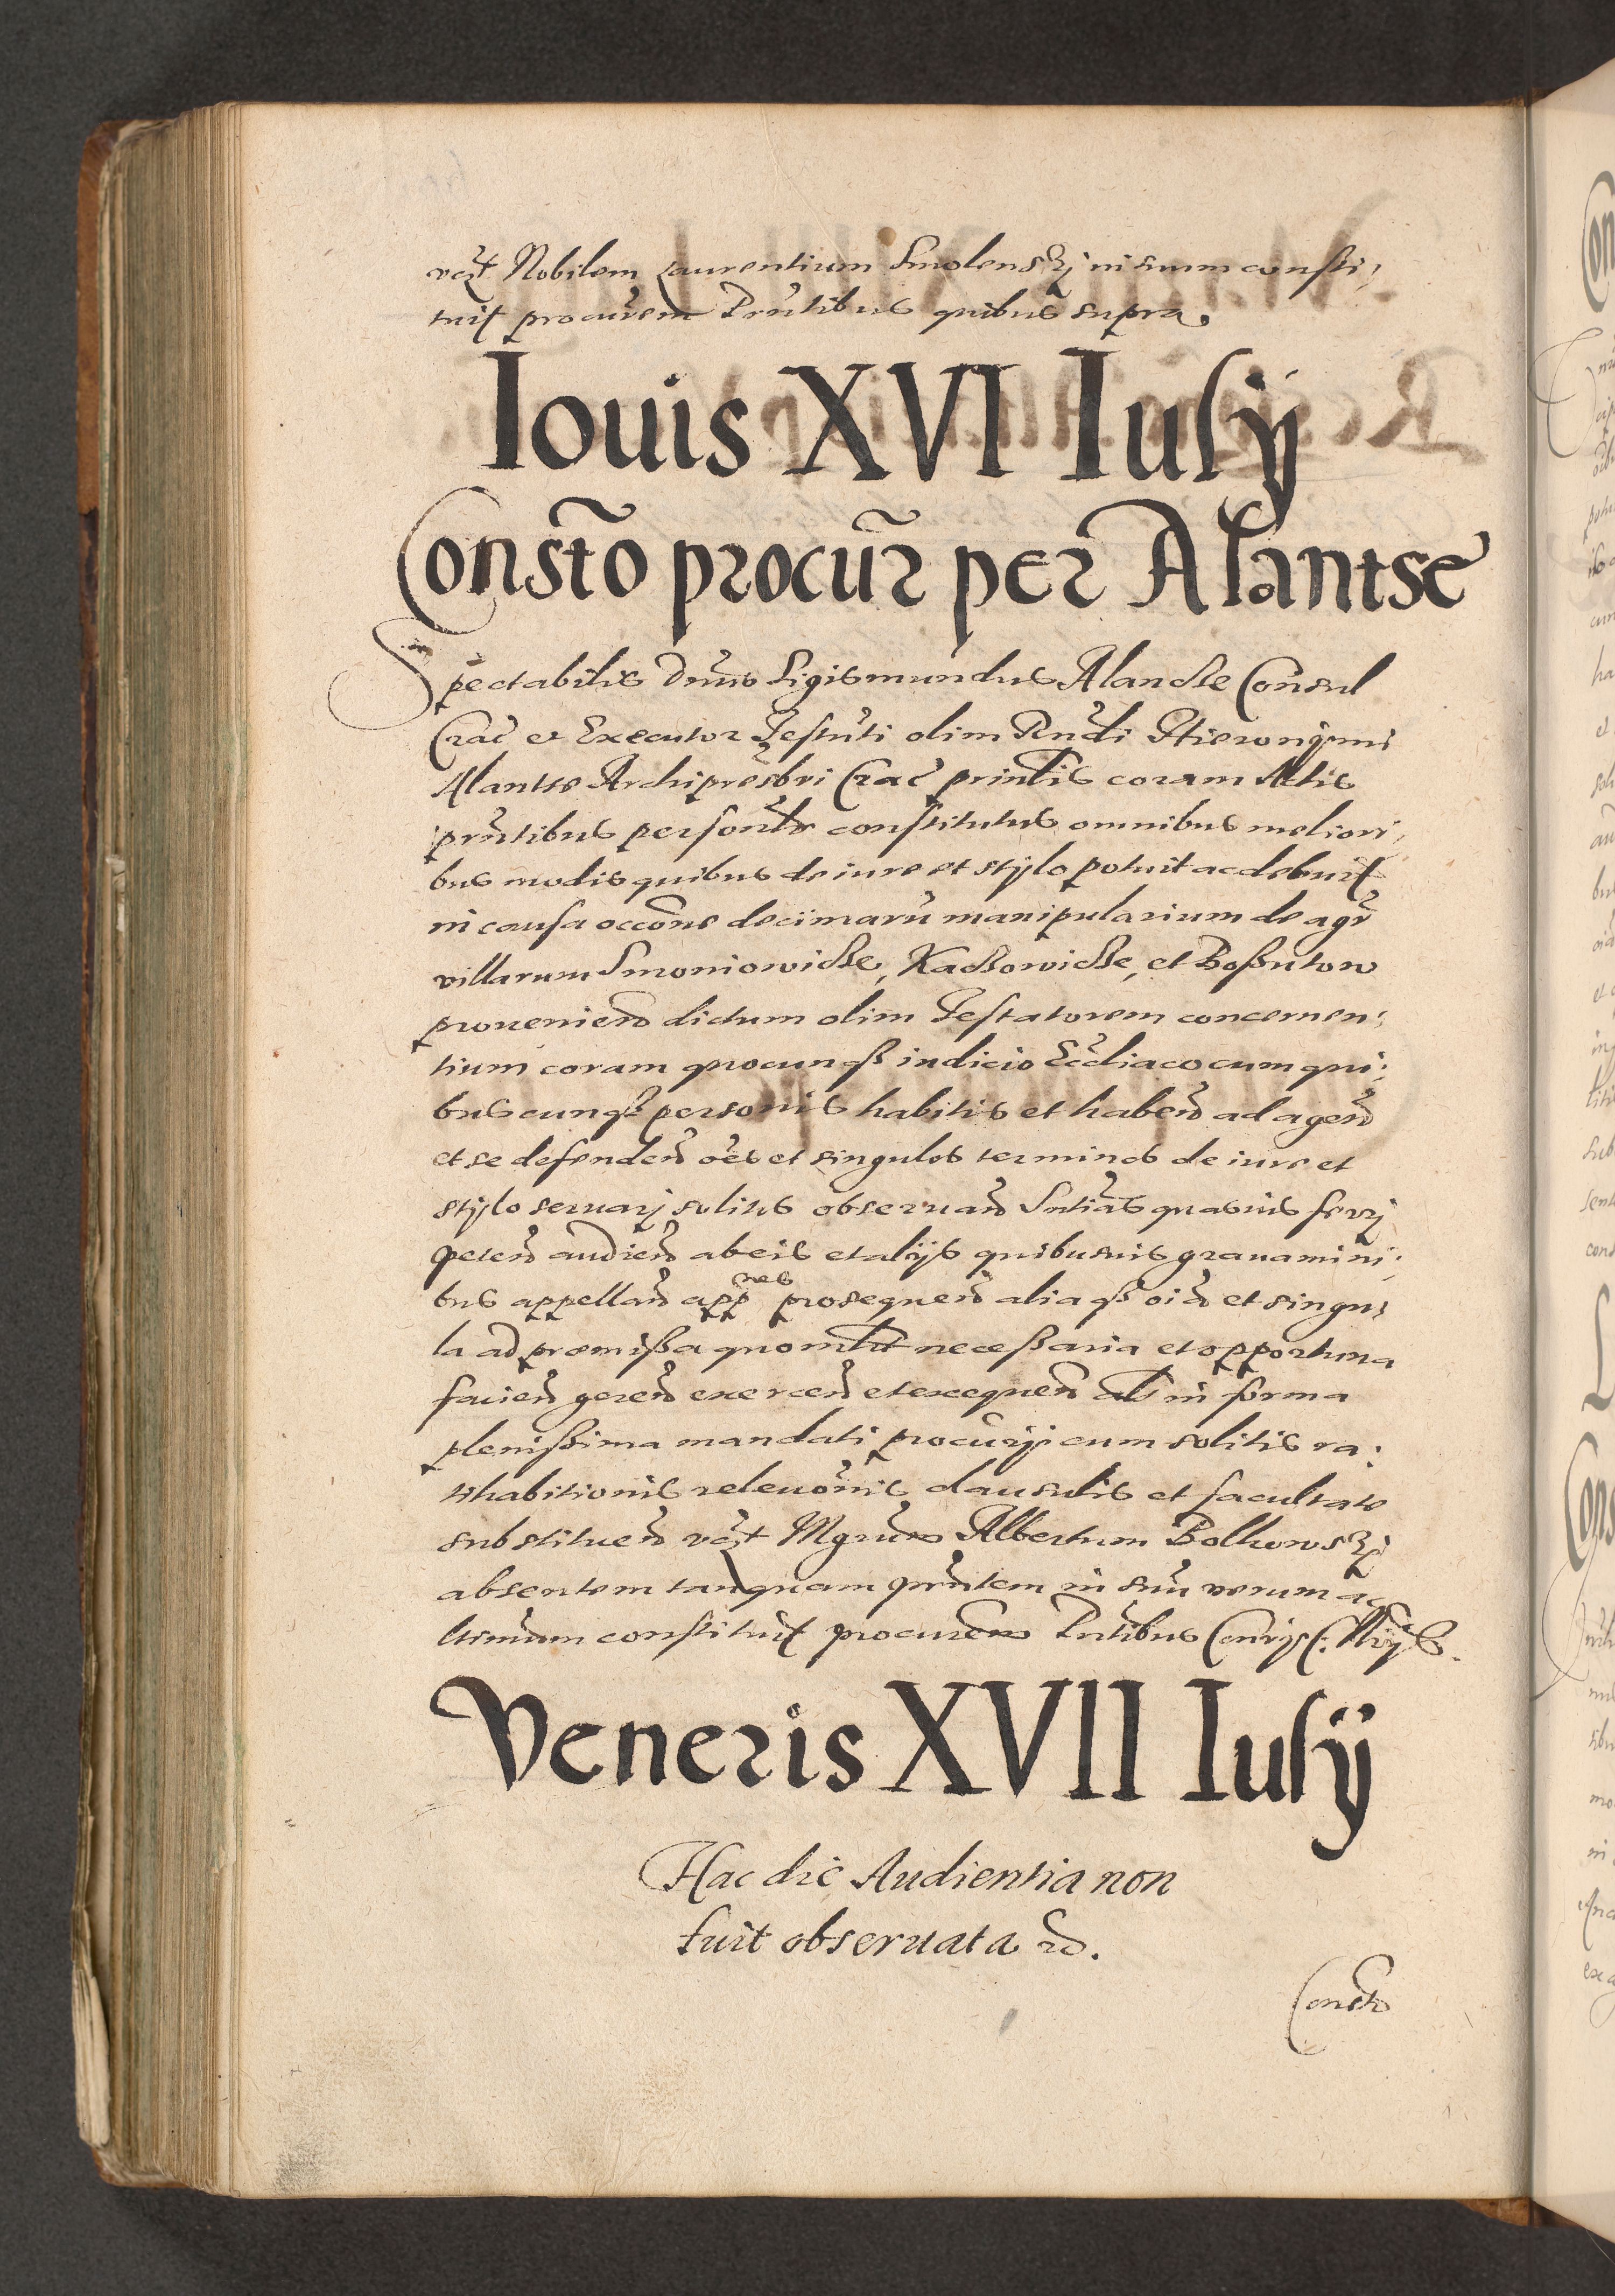 vcꝫt Nobilem Laurentium Smolenskj in suum consti,
tuit procurem Prntibus quibus supra.
Iouis XVI Iulÿ
Consto procur per Alantse
Spectabilis Dnus Sigismundus Alandse Consul
Crac et Executor Testnti olim Rndi Hieronÿmi
Alantse Archipresbri Crac printis coram Actis
prntibus personlr constitutus omnibus meliori,
bus modis quibus de iure et stÿlo potuit ac debuit
in causa occone decimaru manipularium de agr
villarum Smoniowicse, Kacsowicse, et Boßutow
proueniend dictum olim Testatorem concernen,
tium coram quocunqꝫ iudicio Eccliaco cum qui,
buscunqꝫ personis habitis et habend ad agend
et se defendend oes et singulos terminos de iure et
stÿlo seruarj solitos obseruand Sntias quasuis ferrj
petend audiend ab eis et alÿs quibusuis grauamini,
bus appelland appnes prosequend aliaqꝫ oia et singu,
la ad præmißa quomlt necessaria et opportuna
faciend gerend exercend et exequend als in forma
plenißima mandati procurÿ cum solitis ra,
tihabitionis releuonis clausulis et facultate
substituend vcꝫt Mgrum Albertum Bolkowskj
absentem tanquam prntem in suu verum ac
ltimum constituit procurem Pntibus
Veneris XVII Iulÿ
Hac die Audientia non
fuit obseruata
Consto